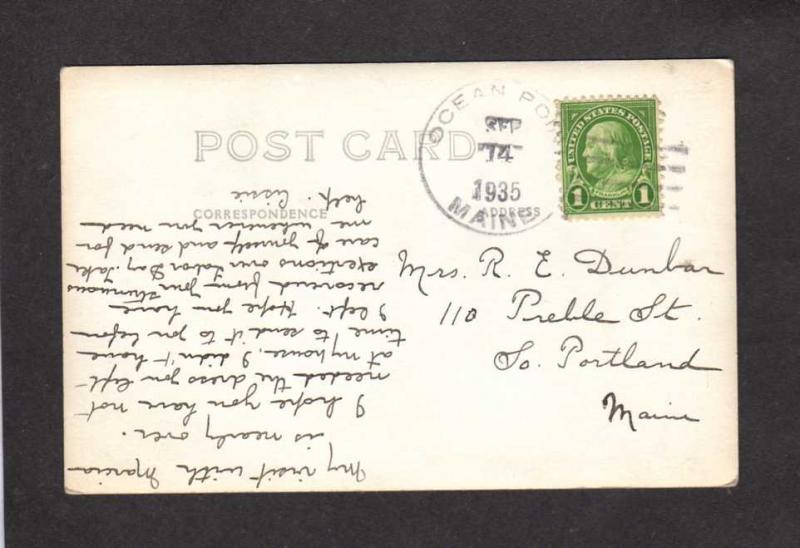 POST CARD
CORRESPONDENCE
ADDRESS
OCEAN PO
MAINE
SEP
14
1935
UNITED STATES POSTAGE
FRANKLIN
1 CENT 1
Mrs. R. E. Dunbar
110 Preble St.
So. Portland
Maine
My visit with Marcia
is nearly over.
I hope you have not
needed the dress you left
at my house. I didn't have
time to send it to you before
I left. Hope you have
recovered from your strenuous
exertions over Labor Day. Take
care of yourself and send for
me whenever you need
help. Cissie